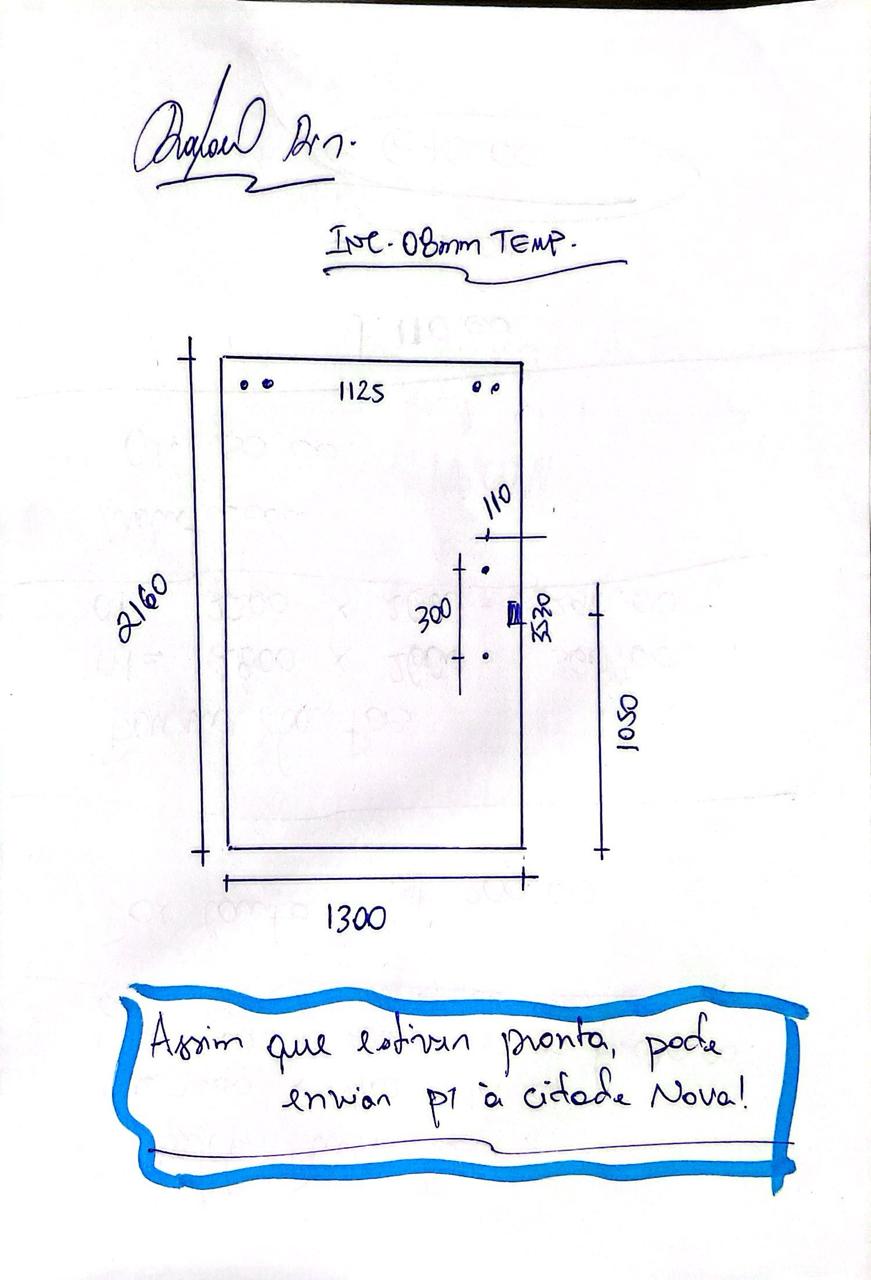 Rafael
INC. 08mm TEMP.
1125
110
2160
300
3530
1050
1300
Assim que estiver pronta, pode
enviar p/ à cidade Nova!